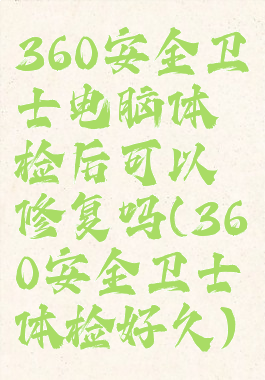 360安全卫
士电脑体
检后可以
修复吗(36
0安全卫士
体检好久)